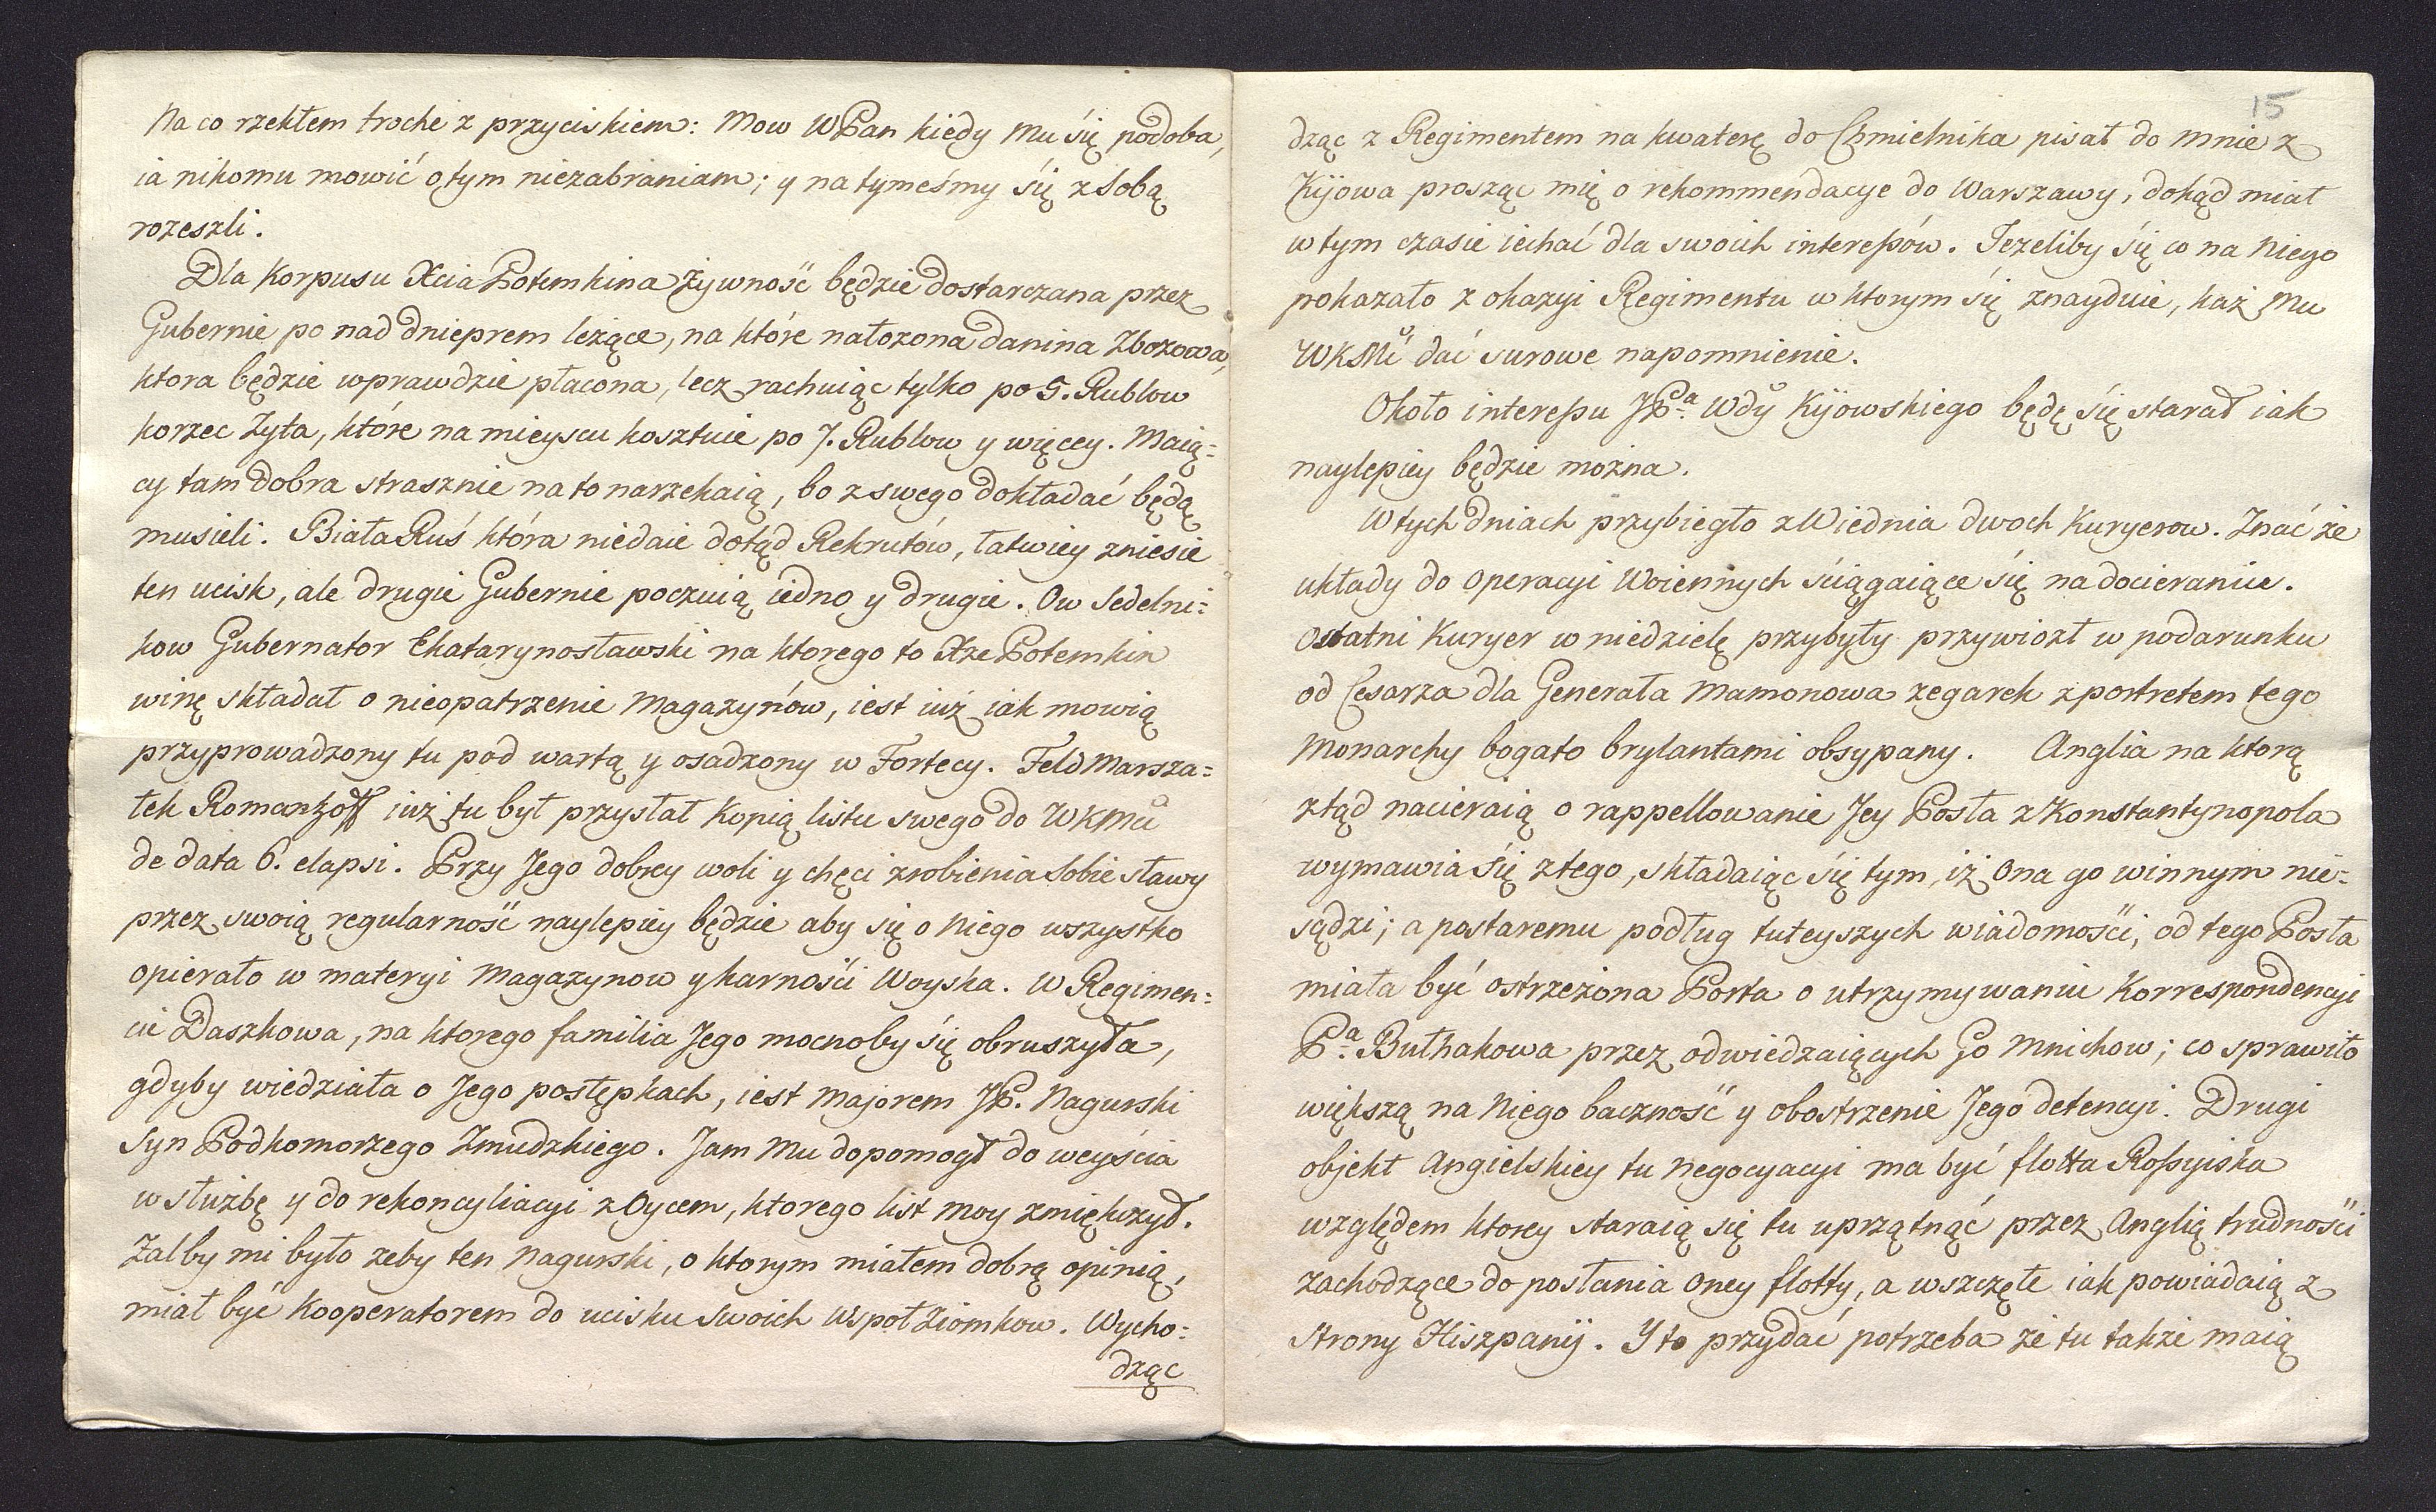 Na co rzekłem troche z przyciskiem: Mow WPan kiedy Mu się podoba,
ia nikomu mowić o tym niezabraniam; y na tymeśmy się z Sobą
rozeszli.
Dla Korpusu Xcia Potemkina żywność będzie dostarczana przez
Gubernie po nad dnieprem leżące, na które nałożona danina Zbożowa,
ktora będzie wprawdzie płacona, lecz rachuiąc tylko po 5. Rublow
korzec Żyta, które na mieyscu kosztuie po 7. Rublow y więcey. Maią=
cy tam dobra strasznie na to narzekaią, bo z swego dokładać będą
musieli. Biała Ruś która niedaie dotąd Rekrutów, łatwiey zniesie
ten ucisk, ale drugie Gubernie poczuią iedno y drugie. Ow Sedelni=
kow Gubernator Ekatarynosławski na ktorego to Xże Potemkin
winę składał o nieopatrzenie Magazynów, iest iuż iak mowią
przyprowadzony tu pod wartą y osadzony w Fortecy. Feld Marsza=
łek Romanzoff iuż tu był przysłał Kopią listu swego do WKMci
de data 6. elapsi. Przy Jego dobrey woli y chęci zrobienia Sobie sławy
przez swoią regularność naylepiey będzie aby się o Niego wszystko
opierało w materyi Magazynow y karności Woyska. W Regimen=
cie Daszkowa, na ktorego familia Jego mocnoby się obruszyła,
gdyby wiedziała o Jego postępkach, iest Majorem JP. Nagurski
Syn Podkomorzego Zmudzkiego. Jam Mu dopomogł do weyścia
w służbę y do rekoncyliacyi z Oycem, ktorego list moy zmiękczył.
Zal by mi było żeby ten Nagurski, o ktorym miałem dobrą opinią,
miał być Kooperatorem do ucisku Swoich Wspoł Ziomkow. Wycho=
dząc
15
dząc z Regimentem na kwaterę do Chmielnika pisał do mnie z
Kijowa prosząc mię o rekommendacye do Warszawy, dokąd miał
w tym czasie iechać dla swoich interessów. Jeżeliby się co na Niego
pokazało z okazyi Regimentu w ktorym się znayduie, każ Mu
WKMć dać surowe napomnienie.
Około interessu JPa Wdy Kijowskiego będę się starał iak
naylepiey będzie można.
W tych dniach przybiegło z Wiednia dwoch Kuryerow. Znać że
układy do operacyi Woiennych ściągaiące się na docieraniu.
Ostatni Kuryer w niedzielę przybyły przywiozł w podarunku
od Cesarza dla Generała Mamonowa zegarek z portretem tego
Monarchy bogato brylantami obsypany. Anglia na ktorą
ztąd nacieraią o rappellowanie Jey Posła z Konstantynopola
wymawia się z tego, składaiąc się tym, iż Ona go winnym nie=
sądzi; a postaremu podług tuteyszych wiadomości, od tego Posła
miała być ostrzeżona Porta o utrzymywaniu Korrespondencyi
Pa. Bułhakowa przez odwiedzaiących Go Mnichow; co sprawiło
większą na Niego baczność y obostrzenie Jego detencyi. Drugi
objekt Angielskiey tu Negocyacyi ma być flotta Rossyiska
względem ktorey staraią się tu uprzątnąć przez Anglią trudności
zachodzące do posłania Oney flotty, a wszczęte iak powiadaią z
strony Hiszpanij. Y to przydać potrzeba że tu także maią